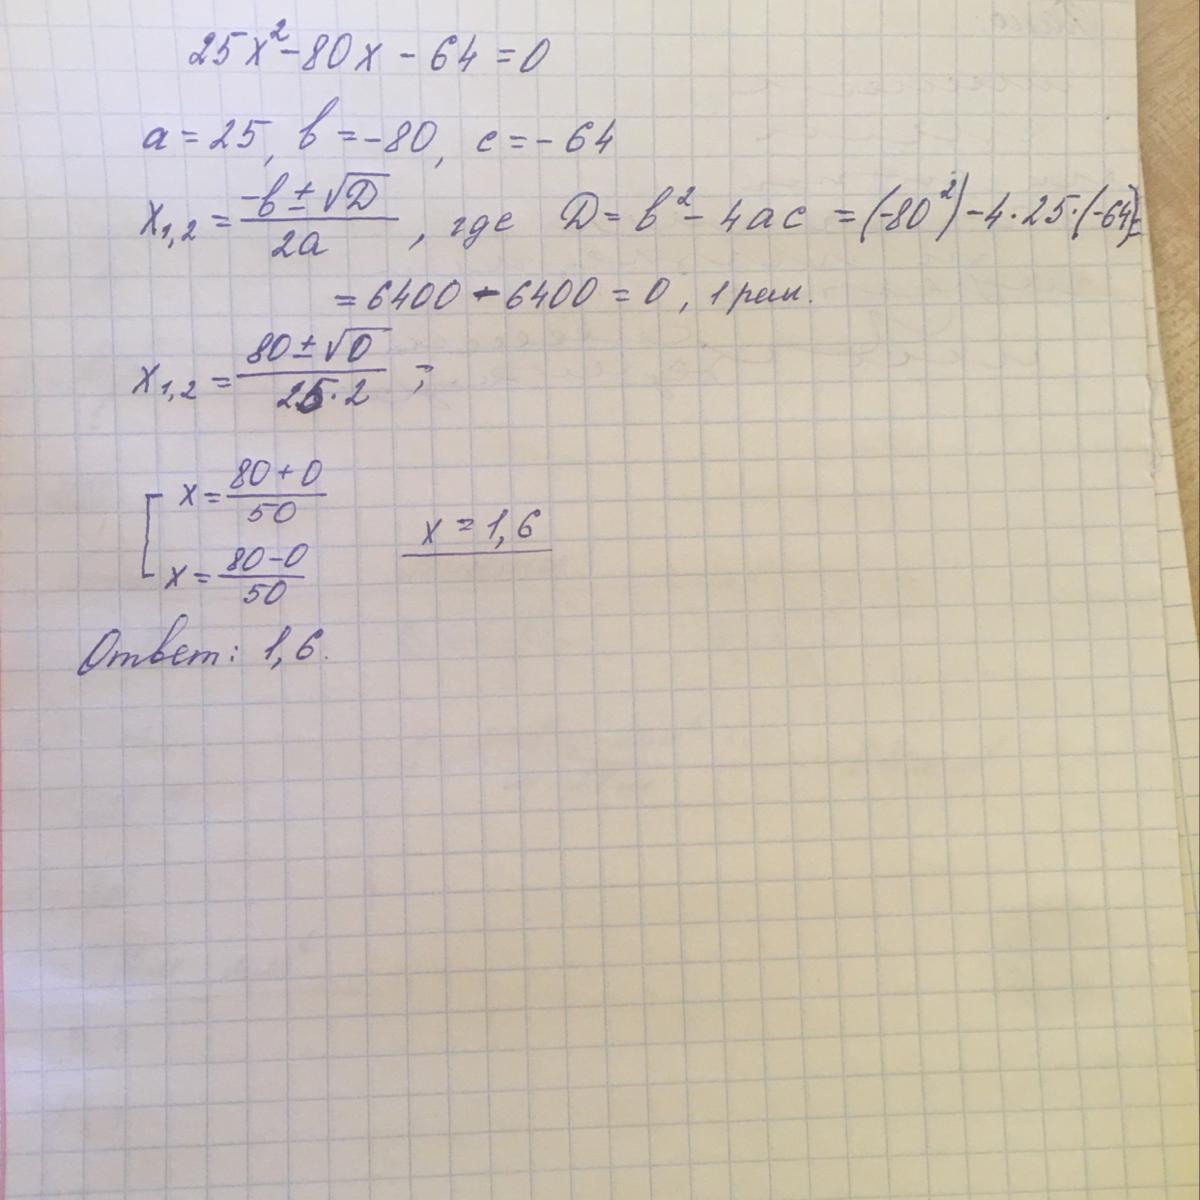 25x² - 80x - 64 = 0
a = 25, b = -80, c = -64
x₁,₂ = (-b ± √D) / 2a, где D = b² - 4ac = (-80²) - 4·25·(-64) =
= 6400 - 6400 = 0, 1 реш.
x₁,₂ = (80 ± √0) / 25·2 ;
x = (80 + 0) / 50
x = 1,6
x = (80 - 0) / 50
Ответ: 1,6.